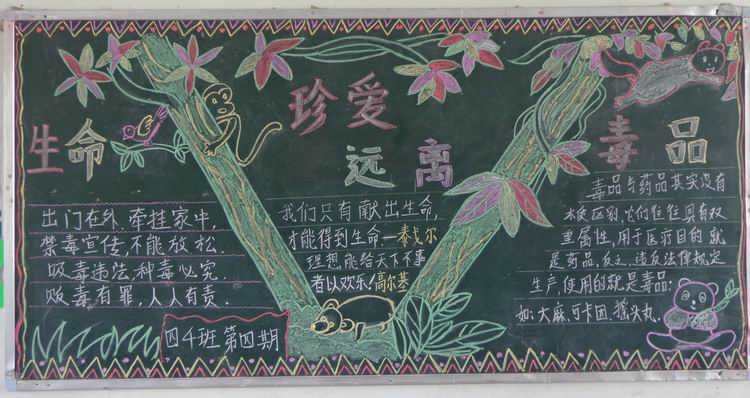 珍爱
生命
远离
毒品
出门在外,牵挂家中,
禁毒宣传,不能放松.
吸毒违法,种毒必究.
贩毒有罪,人人有责.
四4班第四期
我们只有献出生命,
才能得到生命.—泰戈尔
理想能给天下不幸
者以欢乐!高尔基
毒品与药品其实没有
本质区别,它们往往具有双
重属性,用于医疗目的就
是药品,反之,违反法律规定
生产,使用的就是毒品.
如:大麻,可卡因,摇头丸.